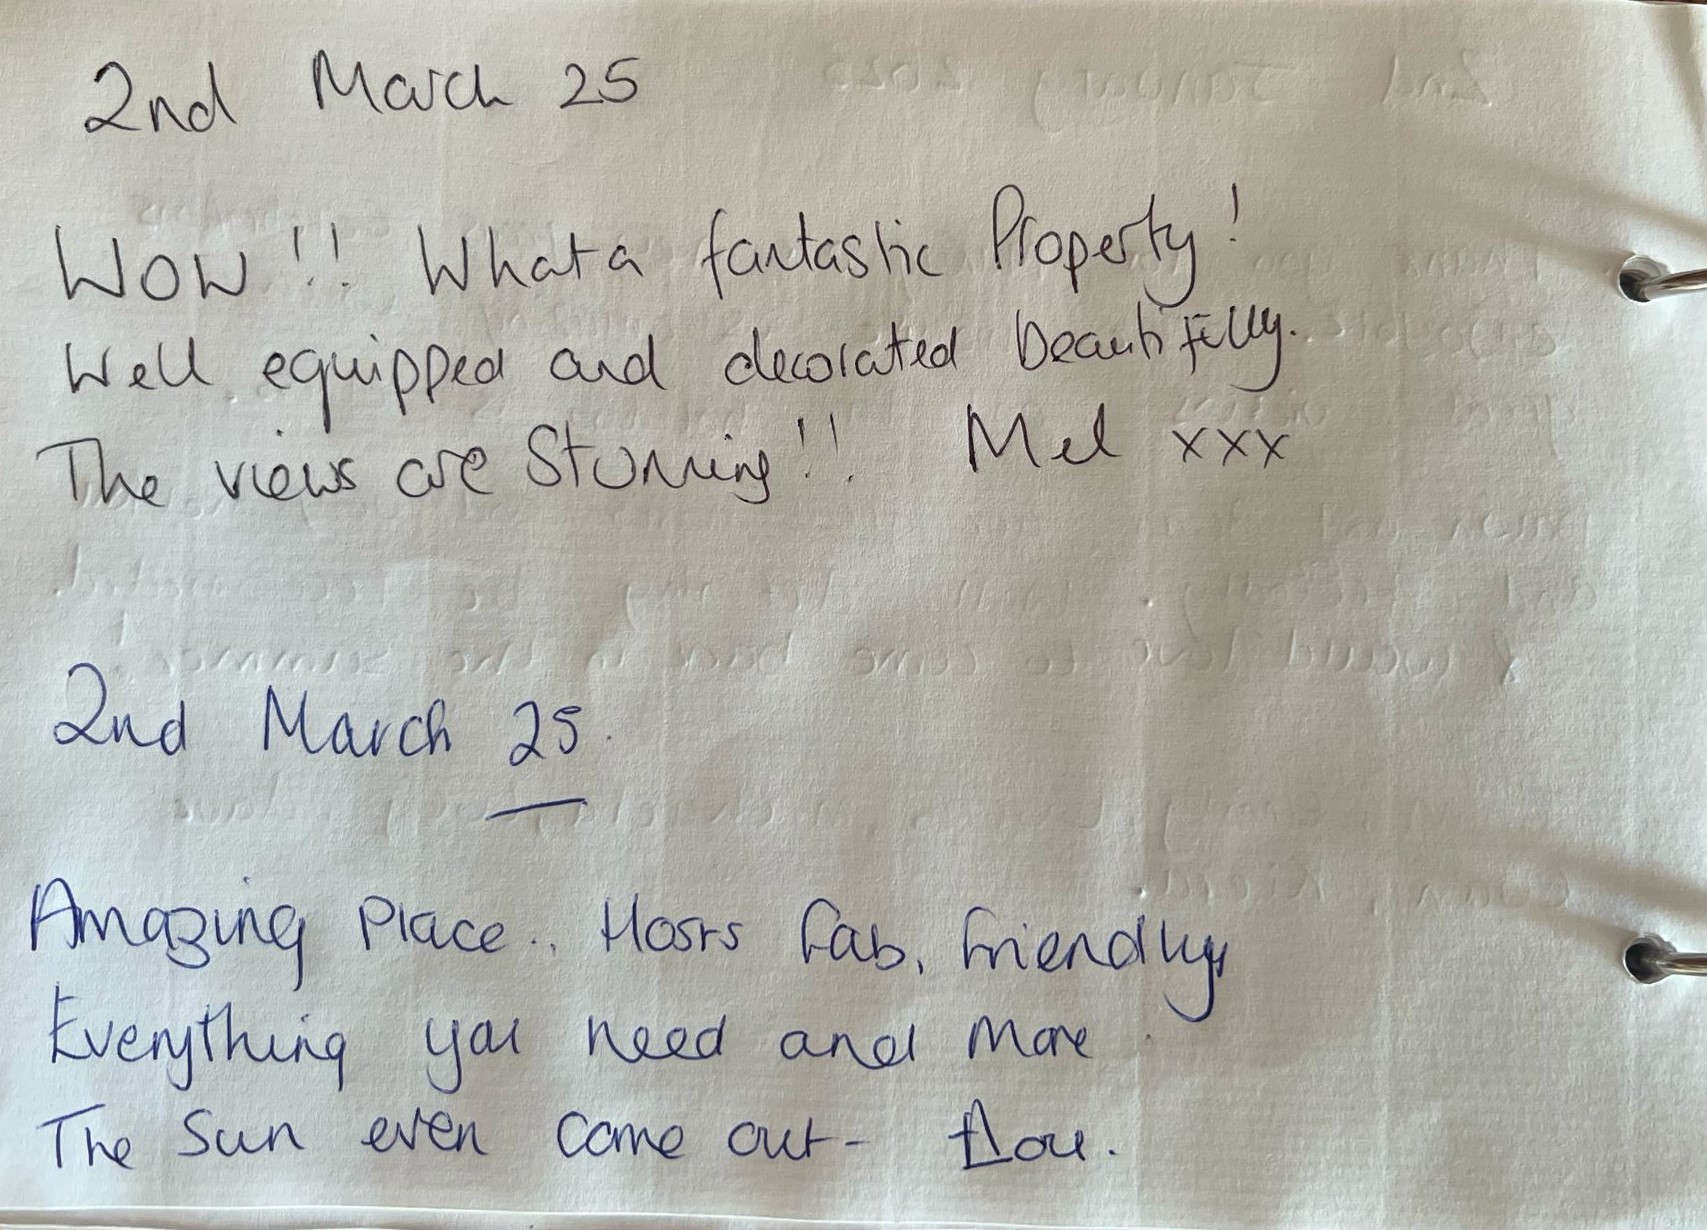 2nd March 25
WOW!! What a fantastic Property!
Well equipped and decorated beautifully.
The views are Stunning!! Mel xxx
2nd March 25.
Amazing Place.. Hosts fab, friendly,
Everything you need and more.
The Sun even came out-